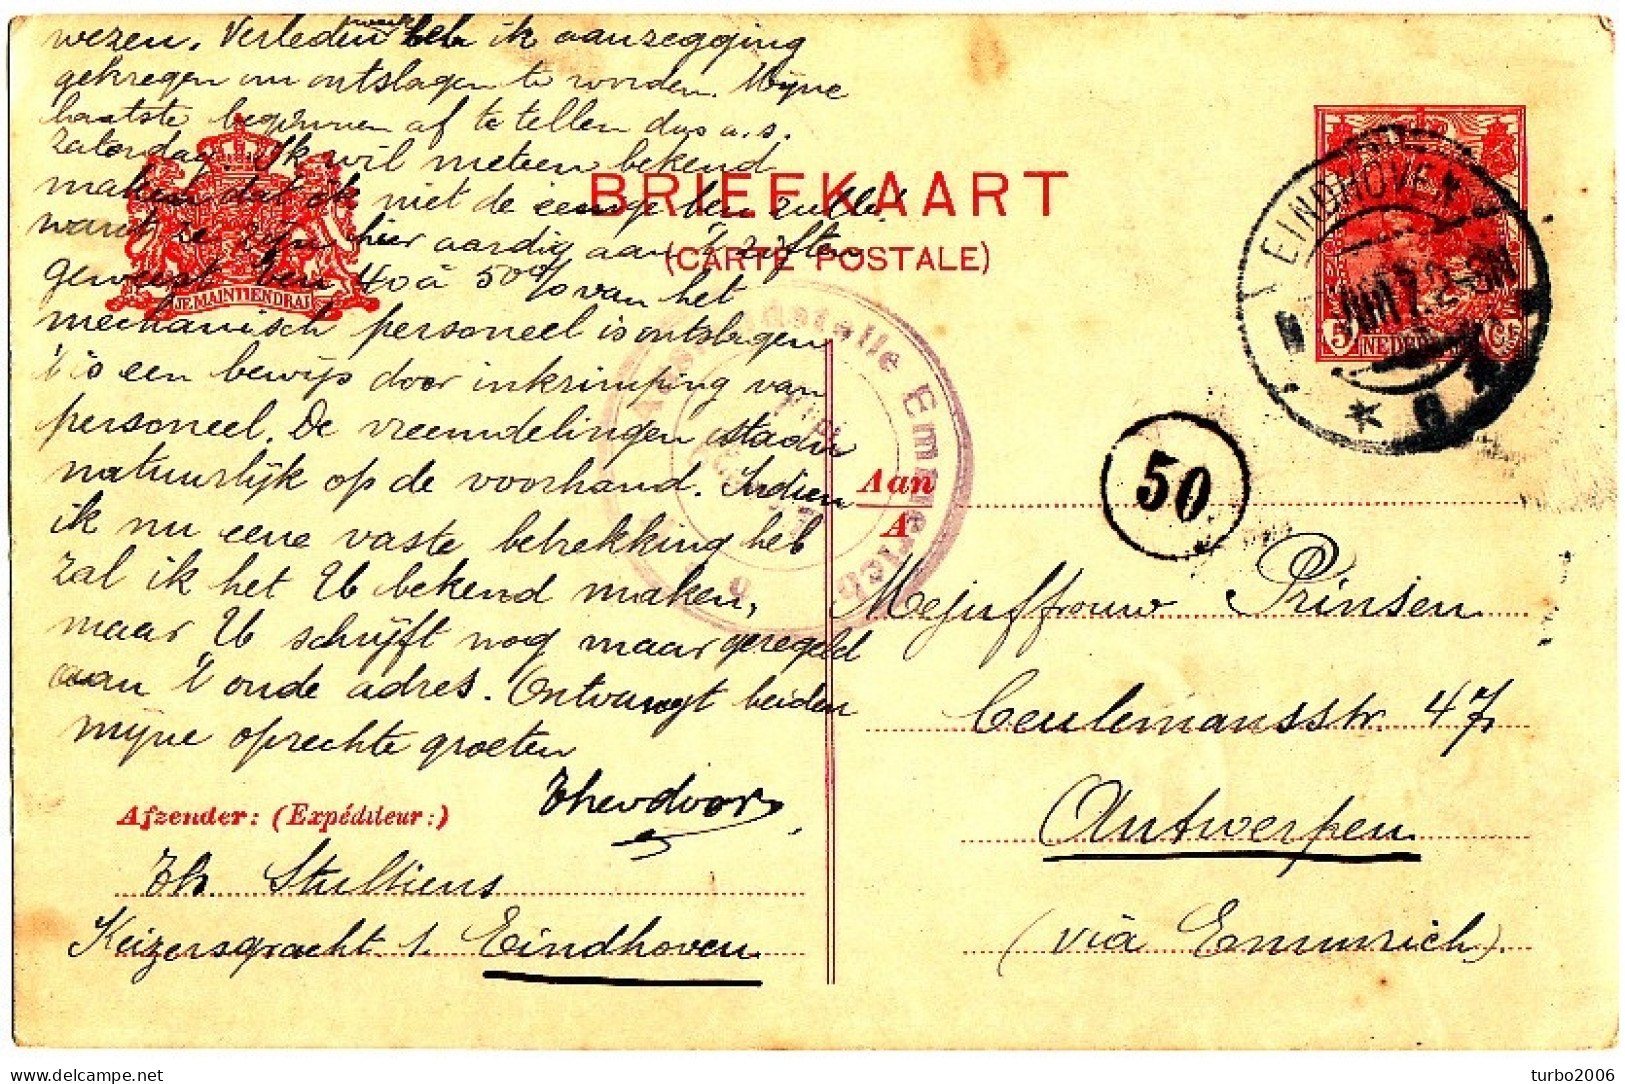 wezen. Verleden week heb ik aanzegging
gekregen om ontslagen te worden. Mijne
laatste beginnen af te tellen dus a.s.
Zaterdag. Ik wil meteen bekend
maken dat ik niet de eenige ben
want ze zijn hier aardig aan 't ziften
geweest. Een 40 à 50% van het
mechanisch personeel is ontslagen
't is een bewijs door inkrimping van
personeel. De vreemdelingen staan
natuurlijk op de voorhand. Indien
ik nu eene vaste betrekking heb
zal ik het U bekend maken,
maar U schrijft nog maar geregeld
aan 't oude adres. Ontvangt beiden
mijne oprechte groeten
Theodoor
Afzender: (Expéditeur:)
Th. Stultiens
Keizersgracht 1. Eindhoven
JE MAINTIENDRAI
BRIEFKAART
(CARTE POSTALE)
EINDHOVEN
5 NEDERLAND Ct
50
Aan
A
Mejuffrouw Prinsen
Ceulemansstr. 47,
Antwerpen
(via Emmrich).
turbo2006